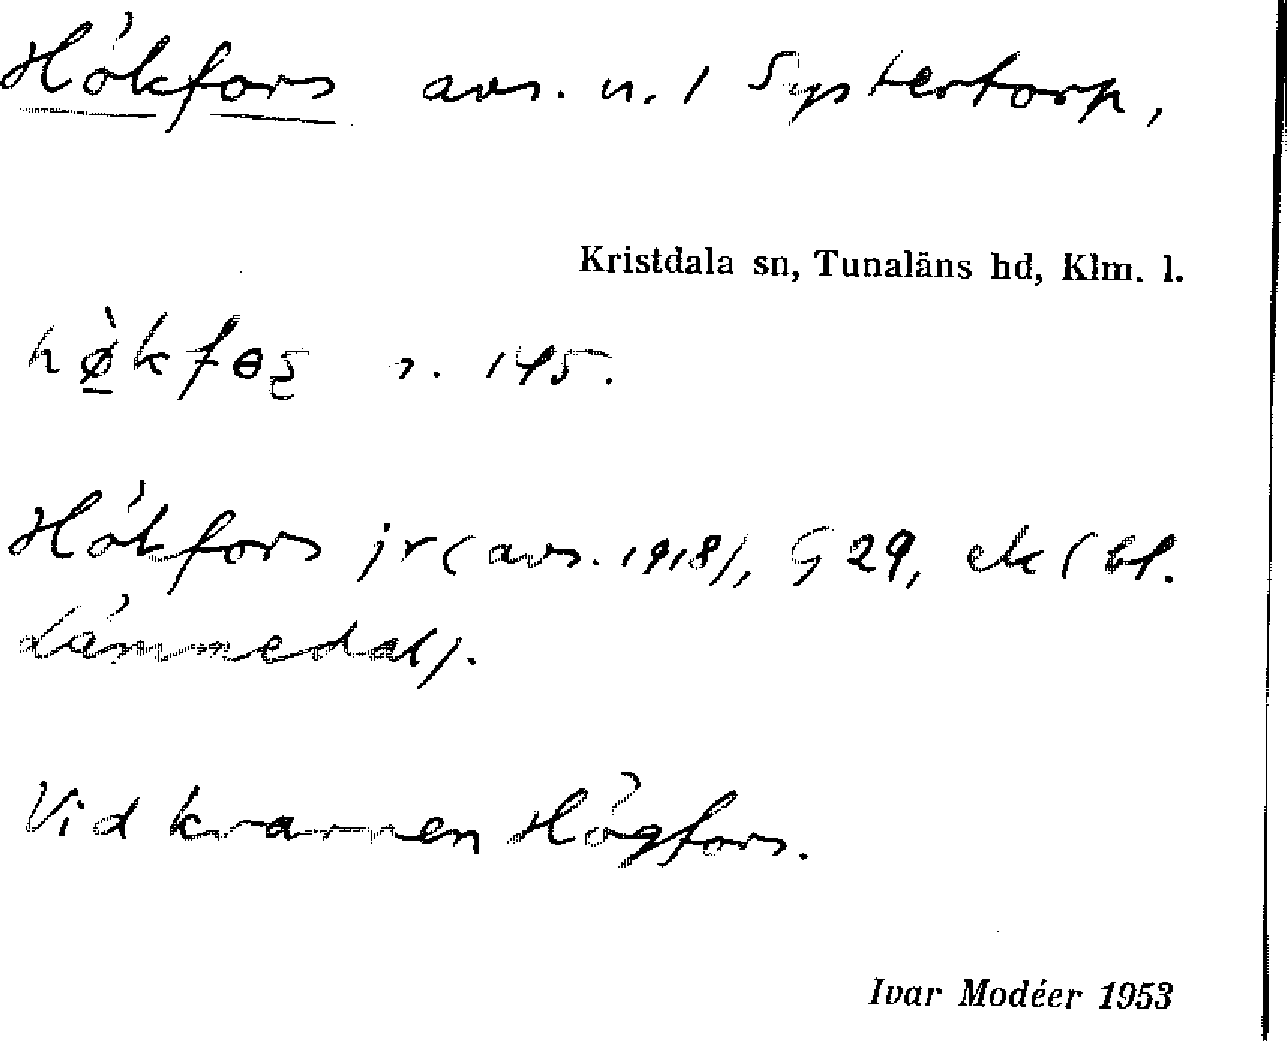 Hökfors avs. u. 1 Systertorp,
Kristdala sn, Tunaläns hd, Klm. l.
s. 145.
Hökfors jr (avs. 1918), G 29, ek (bl.
Lämmedal).
Vid kvarnen Högfors.
Ivar Modéer 1953